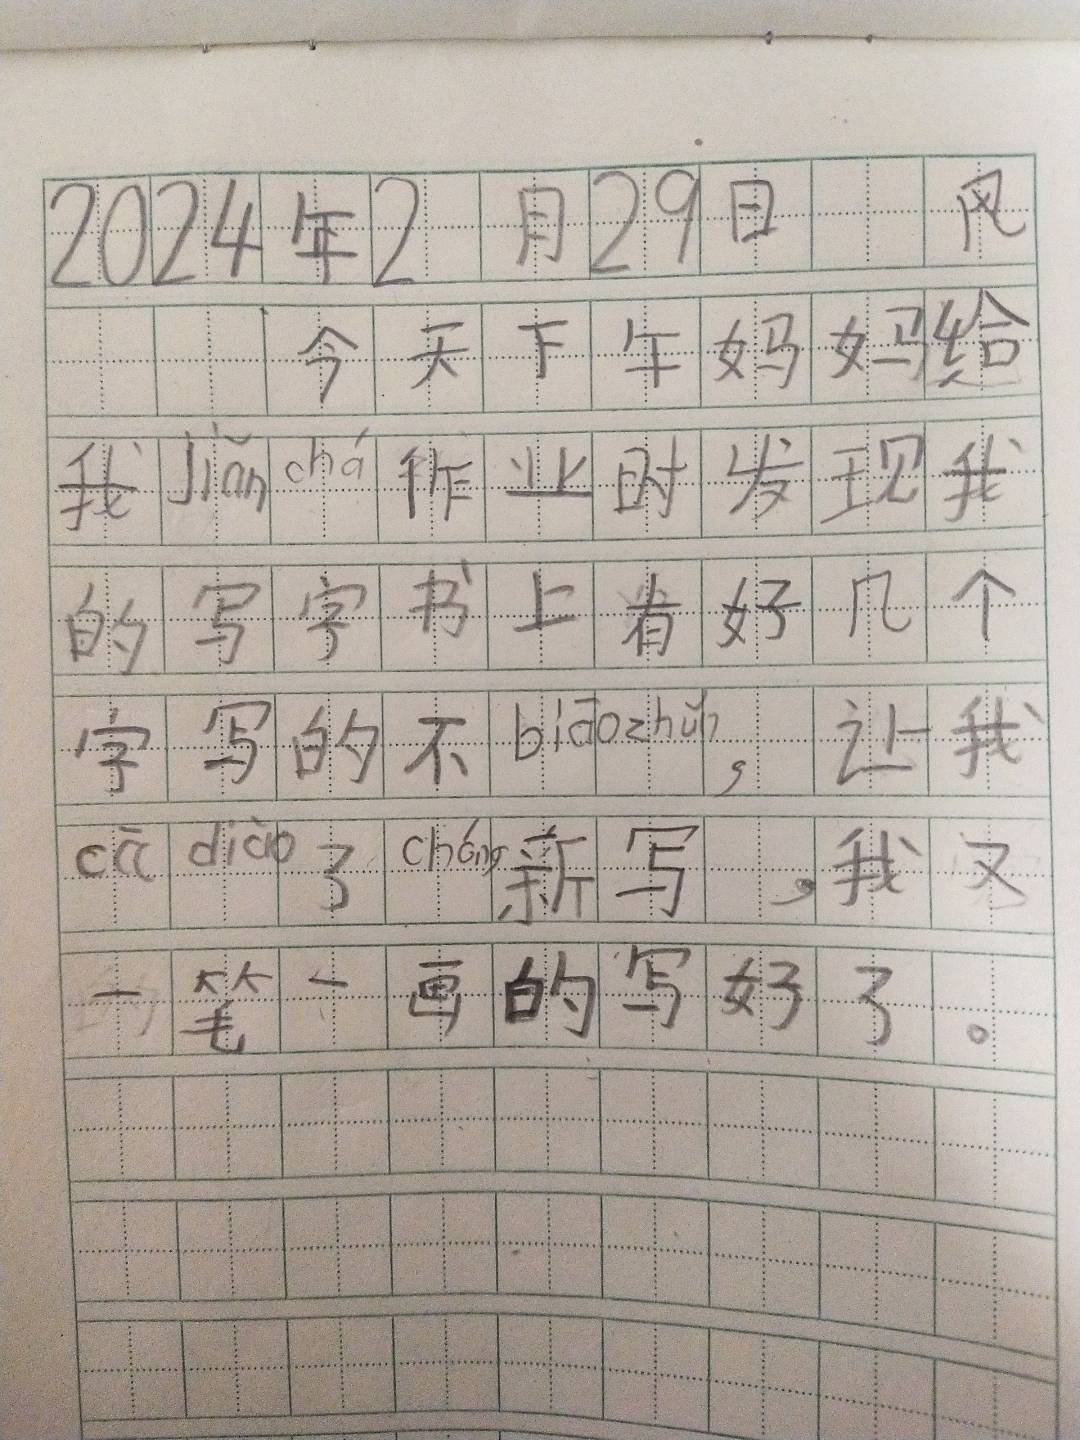 2024年2月29日 风
今天下午妈妈给
我jiǎn chá作业时发现我
的写字书上有好几个
字写的不biāozhǔn，让我
cā diào了chóng新写，我又
一笔一画的写好了。